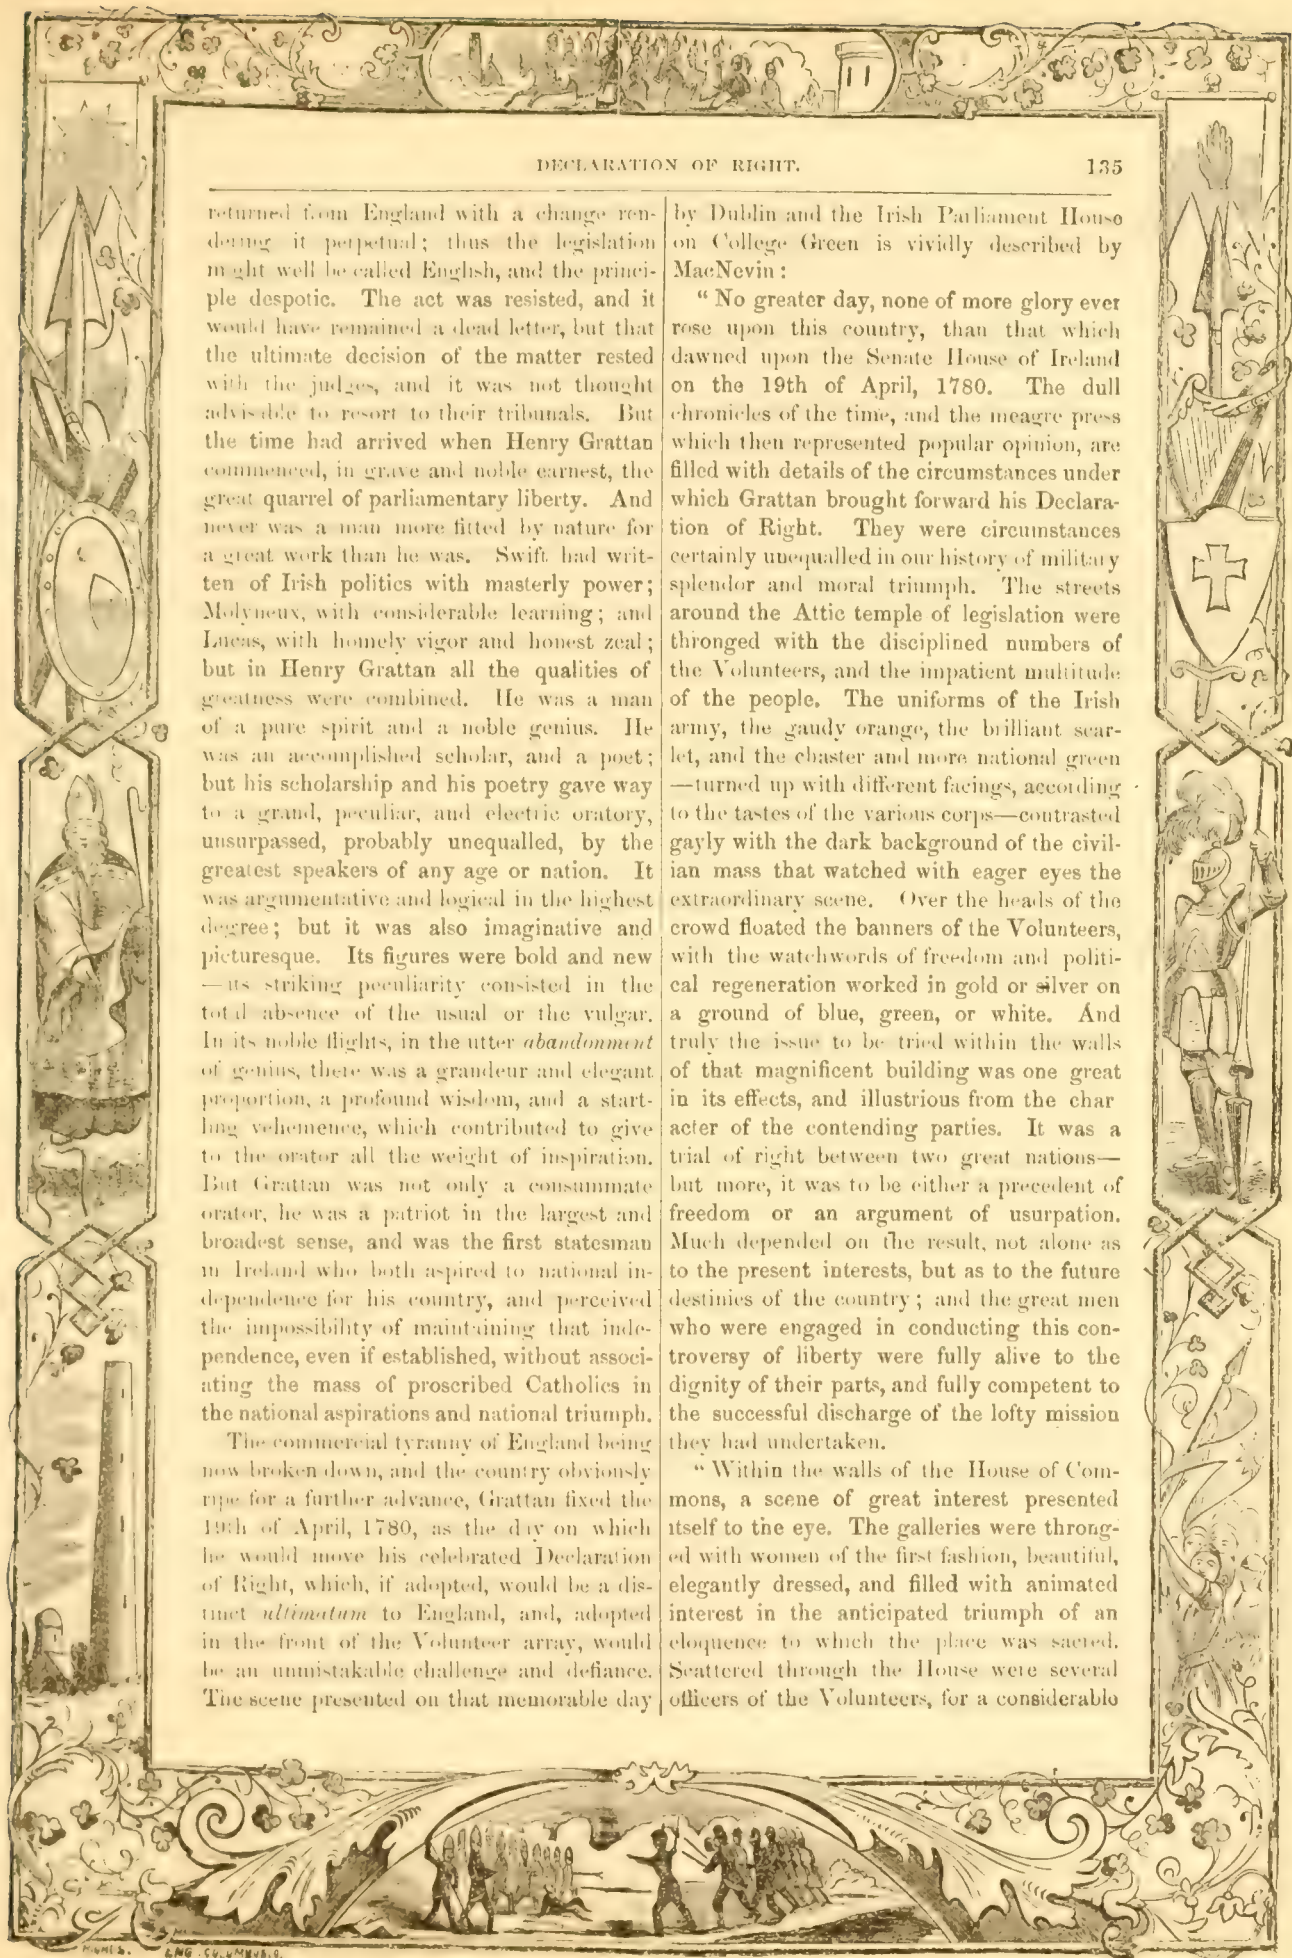 DECLARATION OF RIGHT. 135
returned from England with a change ren-
dering it perpetual; thus the legislation
might well be called English, and the princi-
ple despotic. The act was resisted, and it
would have remained a dead letter, but that
the ultimate decision of the matter rested
with the judges, and it was not thought
advisable to resort to their tribunals. But
the time had arrived when Henry Grattan
commenced, in grave and noble earnest, the
great quarrel of parliamentary liberty. And
never was a man more fitted by nature for
a great work than he was. Swift had writ-
ten of Irish politics with masterly power;
Molyneux, with considerable learning; and
Lucas, with homely vigor and honest zeal;
but in Henry Grattan all the qualities of
greatness were combined. He was a man
of a pure spirit and a noble genius. He
was an accomplished scholar, and a poet;
but his scholarship and his poetry gave way
to a grand, peculiar, and electric oratory,
unsurpassed, probably unequalled, by the
greatest speakers of any age or nation. It
was argumentative and logical in the highest
degree; but it was also imaginative and
picturesque. Its figures were bold and new
—its striking peculiarity consisted in the
total absence of the usual or the vulgar.
In its noble flights, in the utter abandonment
of genius, there was a grandeur and elegant
proportion, a profound wisdom, and a start-
ling vehemence, which contributed to give
to the orator all the weight of inspiration.
But Grattan was not only a consummate
orator, he was a patriot in the largest and
broadest sense, and was the first statesman
in Ireland who both aspired to national in-
dependence for his country, and perceived
the impossibility of maintaining that inde-
pendence, even if established, without associ-
ating the mass of proscribed Catholics in
the national aspirations and national triumph.
The commercial tyranny of England being
now broken down, and the country obviously
ripe for a further advance, Grattan fixed the
19th of April, 1780, as the day on which
he would move his celebrated Declaration
of Right, which, if adopted, would be a dis-
tinct ultimatum to England, and, adopted
in the front of the Volunteer array, would
be an unmistakable challenge and defiance.
The scene presented on that memorable day
by Dublin and the Irish Parliament House
on College Green is vividly described by
MacNevin:
"No greater day, none of more glory ever
rose upon this country, than that which
dawned upon the Senate House of Ireland
on the 19th of April, 1780. The dull
chronicles of the time, and the meagre press
which then represented popular opinion, are
filled with details of the circumstances under
which Grattan brought forward his Declara-
tion of Right. They were circumstances
certainly unequalled in our history of military
splendor and moral triumph. The streets
around the Attic temple of legislation were
thronged with the disciplined numbers of
the Volunteers, and the impatient multitude
of the people. The uniforms of the Irish
army, the gaudy orange, the brilliant scar-
let, and the chaster and more national green
—turned up with different facings, according
to the tastes of the various corps—contrasted
gayly with the dark background of the civil-
ian mass that watched with eager eyes the
extraordinary scene. Over the heads of the
crowd floated the banners of the Volunteers,
with the watchwords of freedom and politi-
cal regeneration worked in gold or silver on
a ground of blue, green, or white. And
truly the issue to be tried within the walls
of that magnificent building was one great
in its effects, and illustrious from the char
acter of the contending parties. It was a
trial of right between two great nations—
but more, it was to be either a precedent of
freedom or an argument of usurpation.
Much depended on the result, not alone as
to the present interests, but as to the future
destinies of the country; and the great men
who were engaged in conducting this con-
troversy of liberty were fully alive to the
dignity of their parts, and fully competent to
the successful discharge of the lofty mission
they had undertaken.
"Within the walls of the House of Com-
mons, a scene of great interest presented
itself to the eye. The galleries were throng-
ed with women of the first fashion, beautiful,
elegantly dressed, and filled with animated
interest in the anticipated triumph of an
eloquence to which the place was sacred.
Scattered through the House were several
officers of the Volunteers, for a considerable
ENG. CO. COLUMBUS. O.